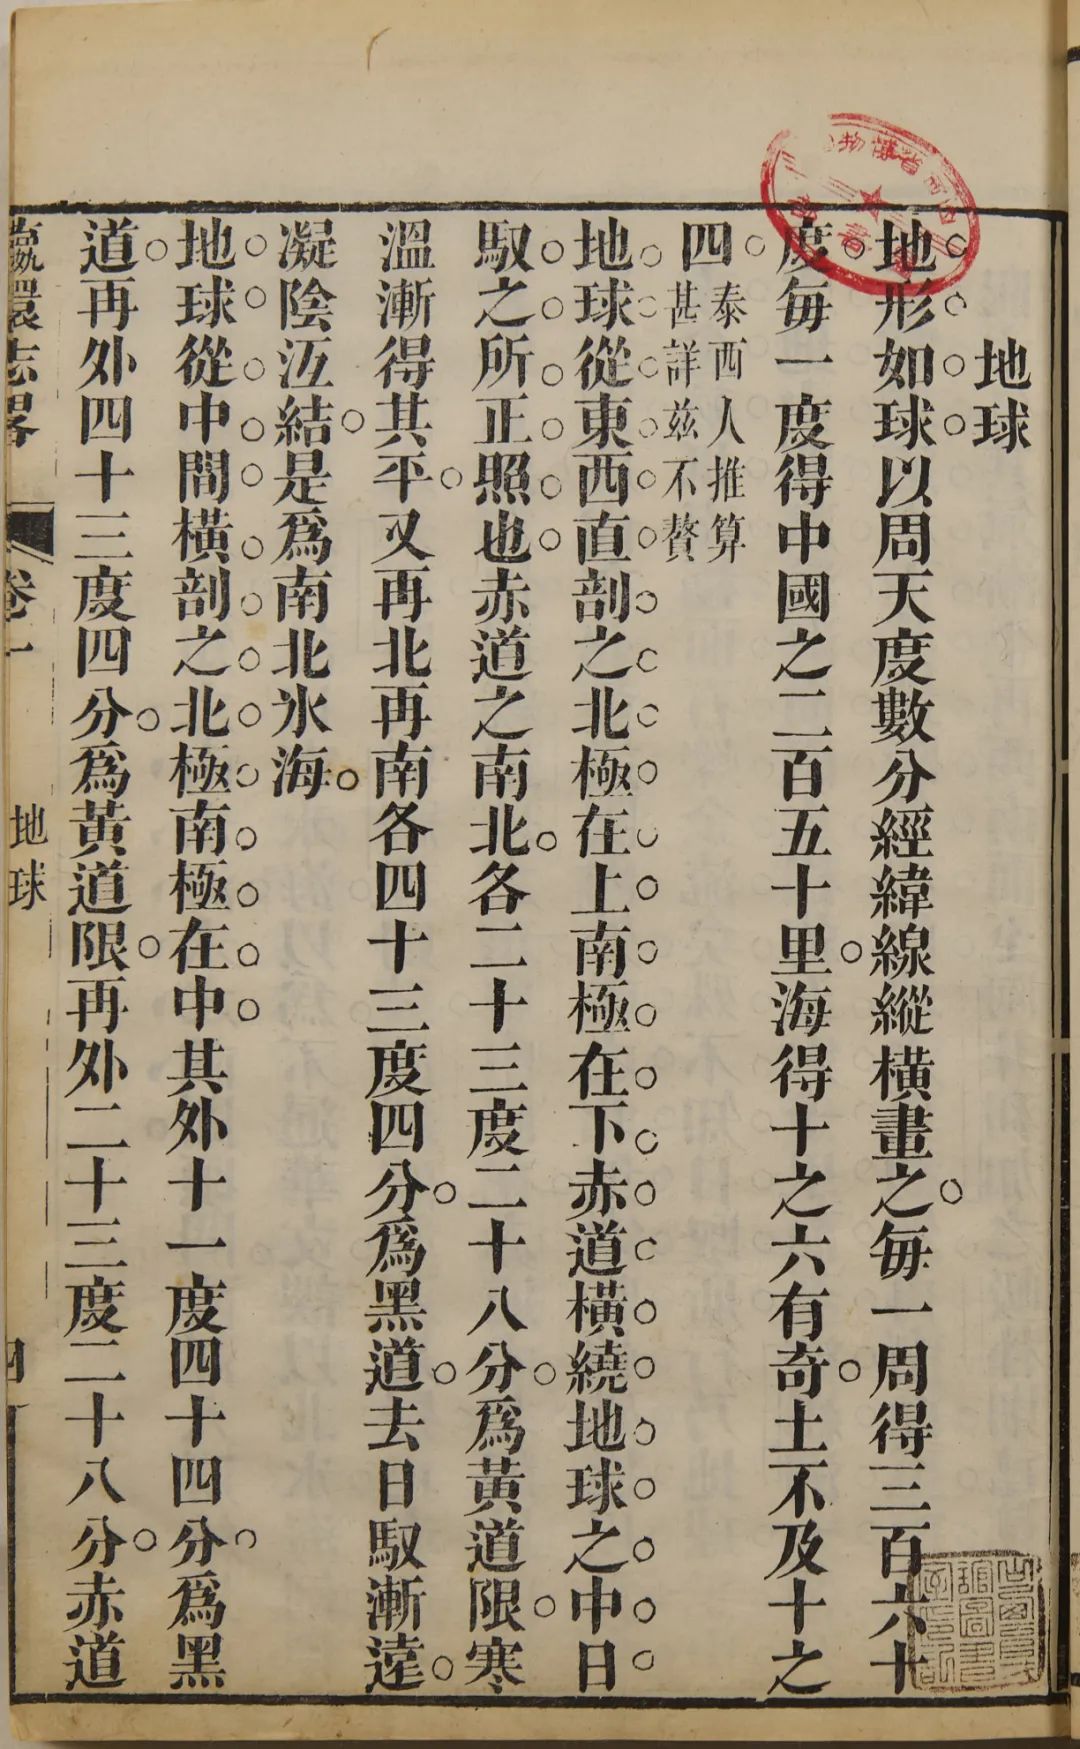 地球
地形如球以周天度數分經緯線縱橫畫之每一周得三百六十
度每一度得中國之二百五十里海得十之六有奇土不及十之
四泰西人推算甚詳茲不贅
地球從東西直剖之北極在上南極在下赤道橫繞地球之中日
馭之所正照也赤道之南北各二十三度二十八分爲黃道限寒
溫漸得其平又再北再南各四十三度四分爲黑道去日馭漸遠
凝陰冱結是爲南北氷海
地球從中間橫剖之北極南極在中其外十一度四十四分爲黑
道再外四十三度四分爲黃道限再外二十三度二十八分赤道
瀛環志畧
卷一
地球
四